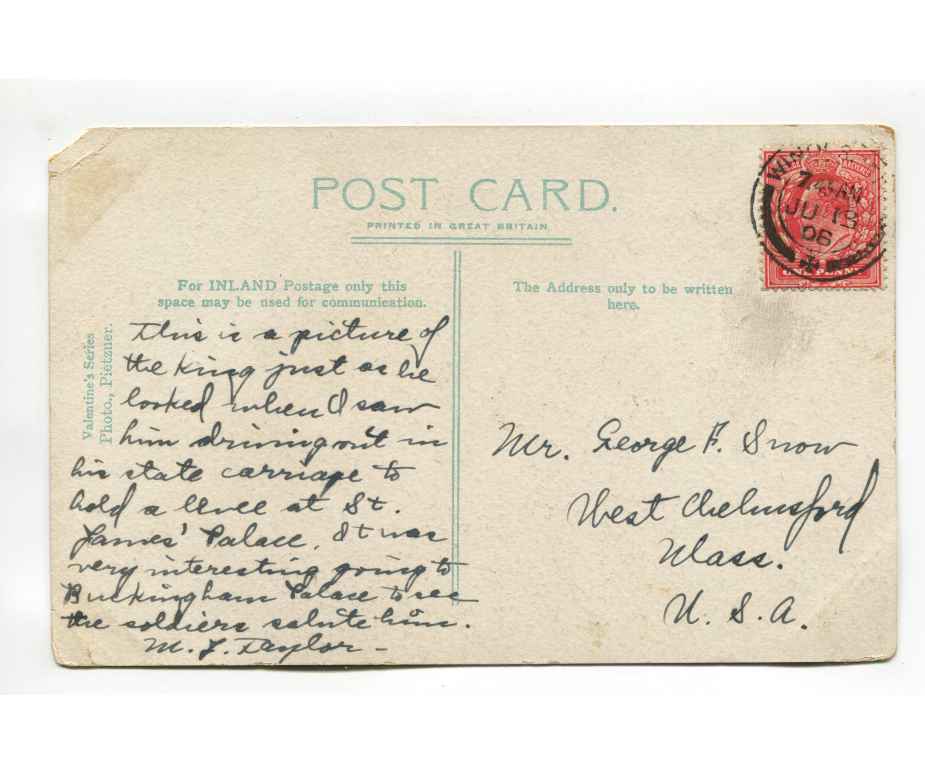 POST CARD.
PRINTED IN GREAT BRITAIN
For INLAND Postage only this
space may be used for communication.
The Address only to be written
here.
Valentine's Series
Photo., Pietzner.
This is a picture of
the King just as he
looked when I saw
him driving out in
his state carriage to
hold a levee at St.
James' Palace. It was
very interesting going to
Buckingham Palace to see
the soldiers salute him.
M. J. Taylor -
Mr. George F. Snow
West Chelmsford
Mass.
U. S. A.
JU 18
06
PENNY